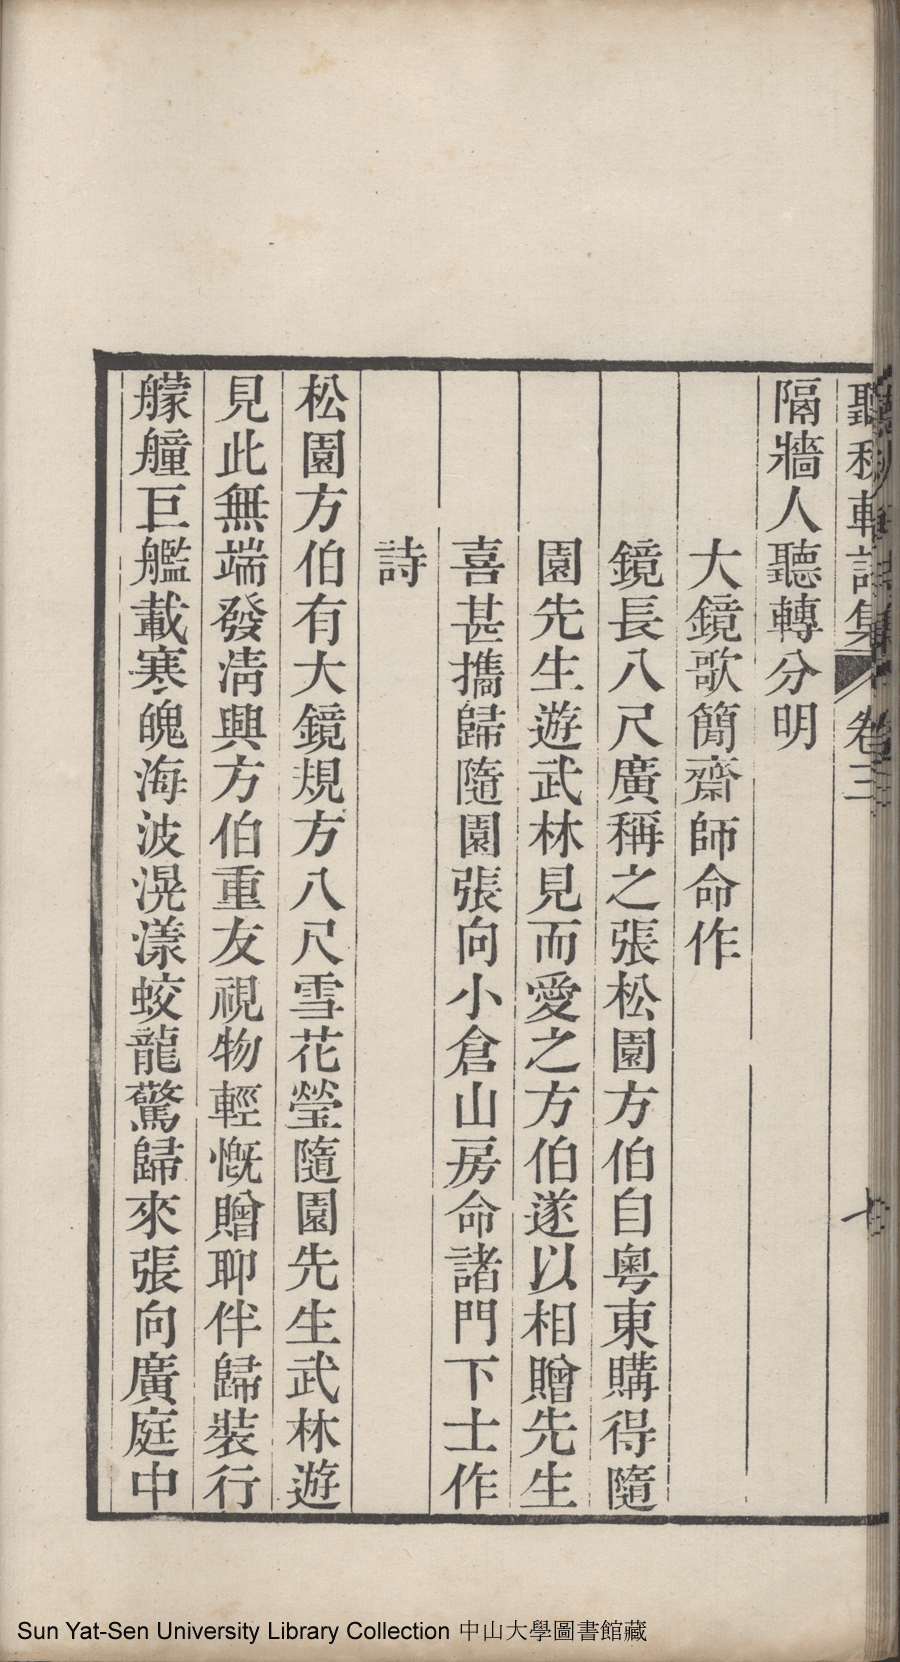 聽秋軒詩集 卷三 七
隔牆人聽轉分明
大鏡歌簡齋師命作
鏡長八尺廣稱之張松園方伯自粵東購得隨
園先生遊武林見而愛之方伯遂以相贈先生
喜甚攜歸隨園張向小倉山房命諸門下士作
詩
松園方伯有大鏡規方八尺雪花瑩隨園先生武林遊
見此無端發淸興方伯重友視物輕慨贈聊伴歸裝行
艨艟巨艦載寒魄海波滉漾蛟龍驚歸來張向廣庭中
Sun Yat-Sen University Library Collection 中山大學圖書館藏